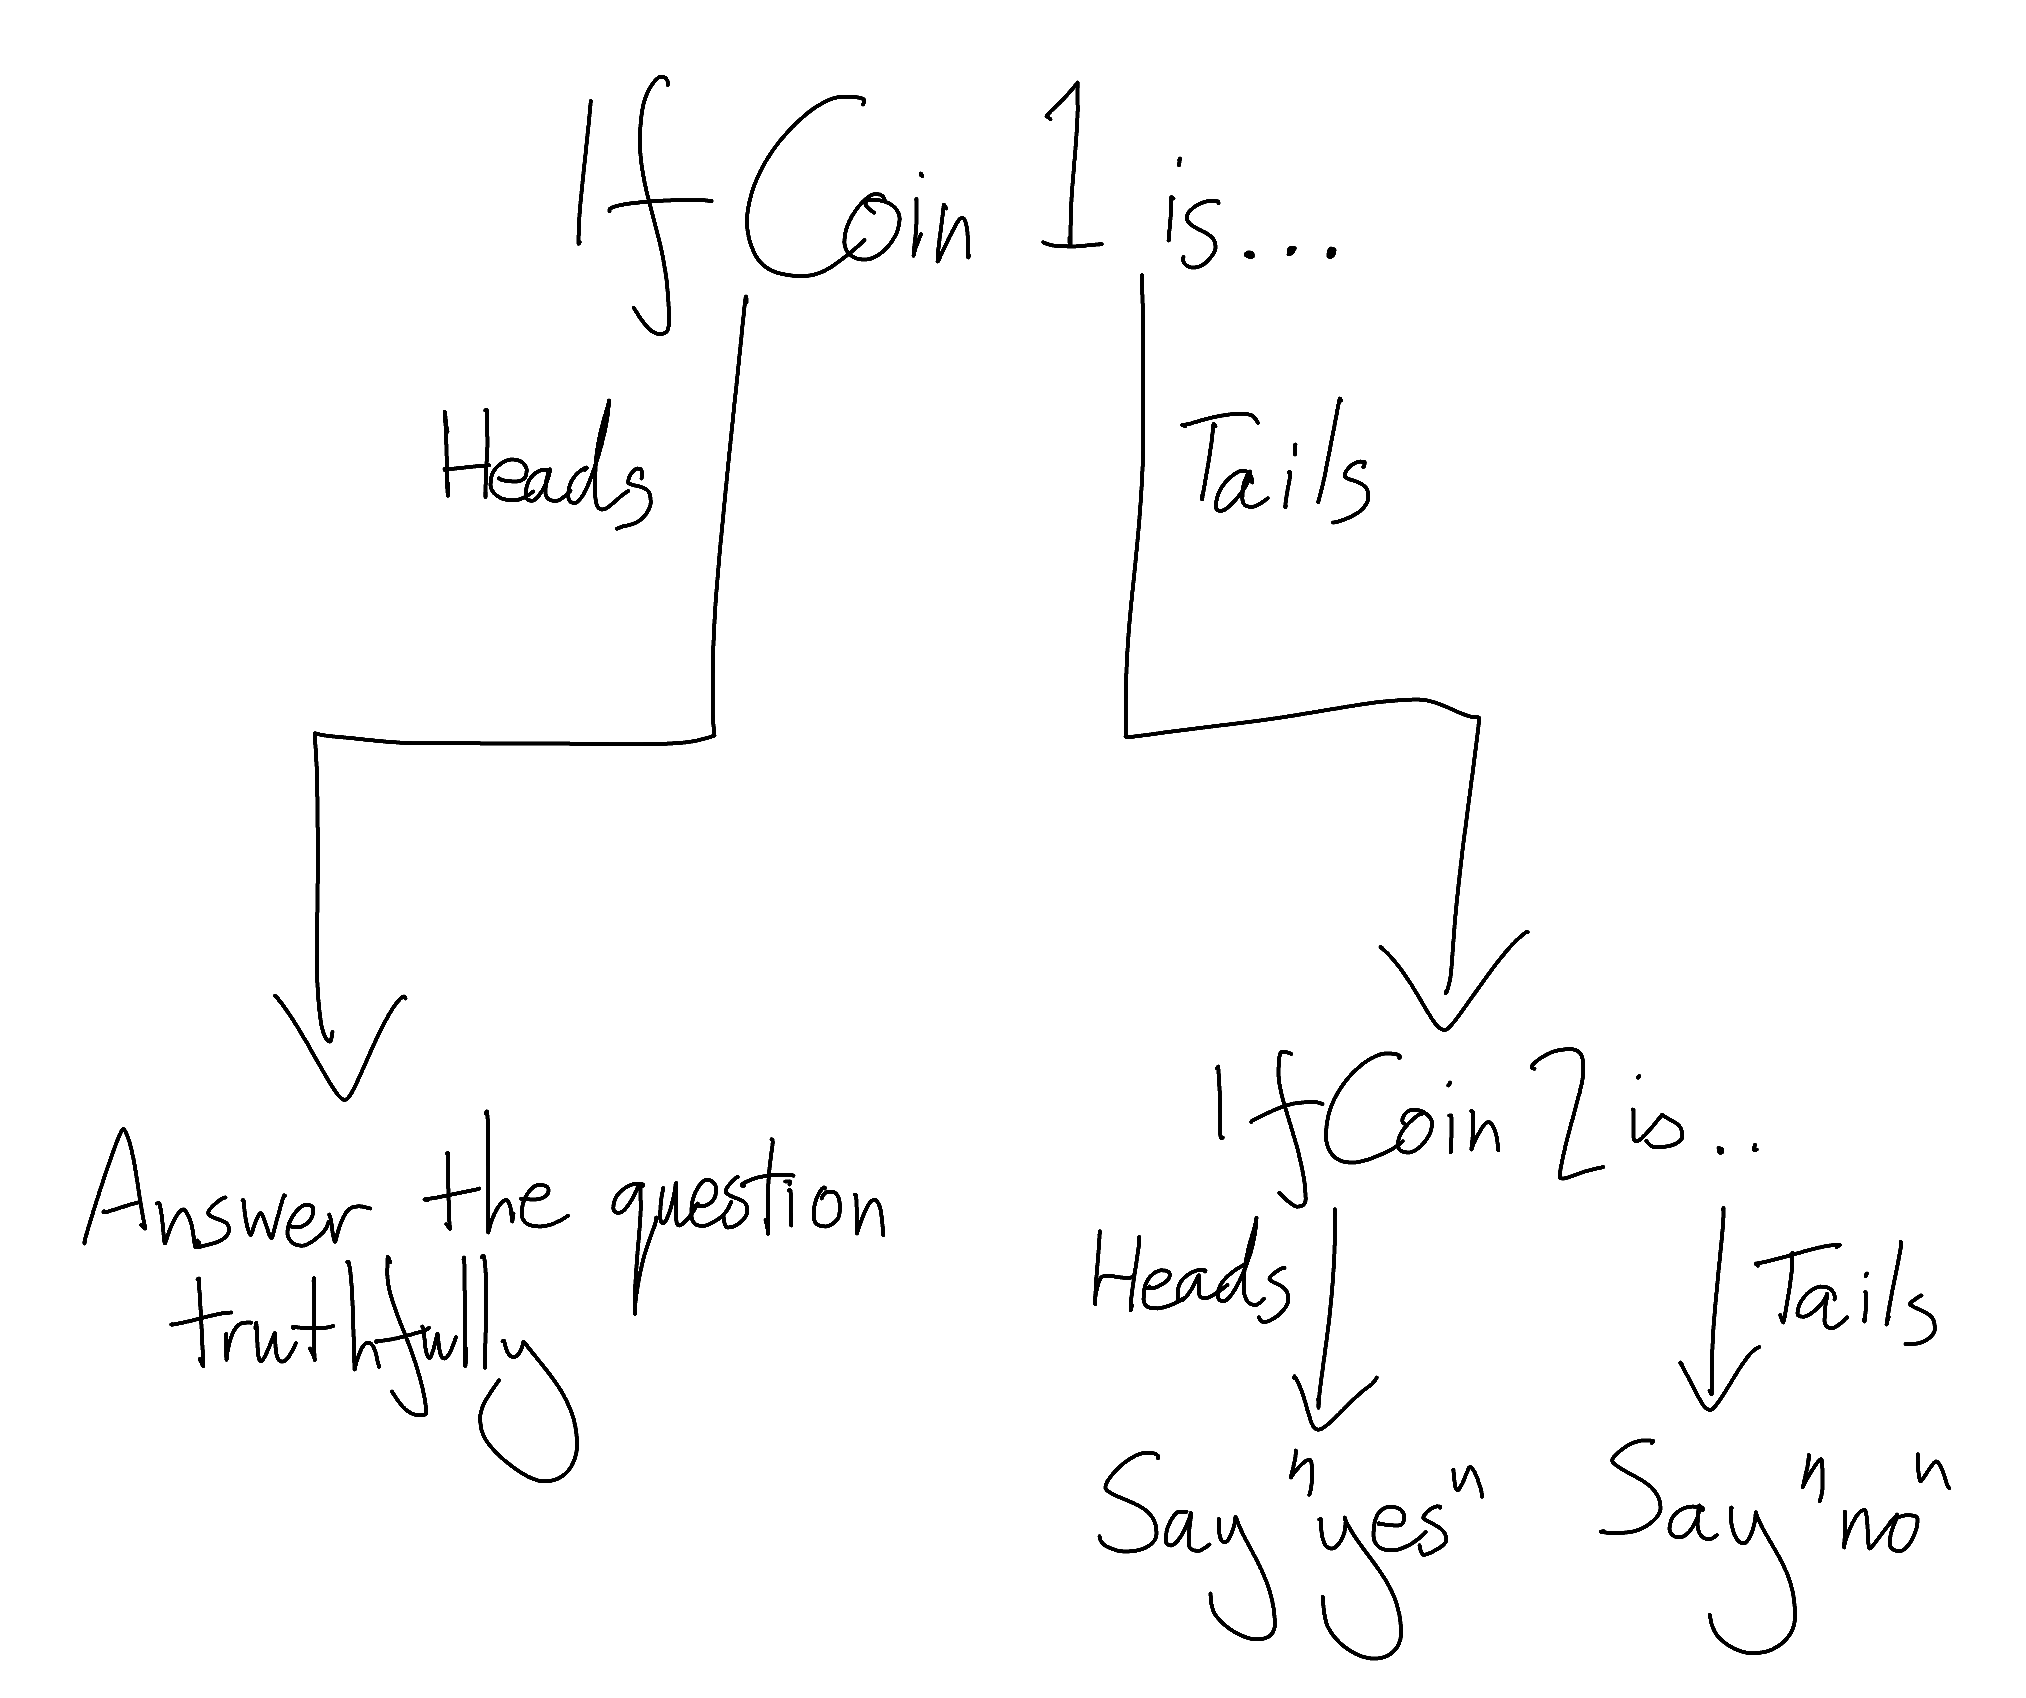 If Coin 1 is...
Heads
Tails
Answer the question
truthfully
If Coin 2 is..
Heads
Tails
Say "yes"
Say "no"